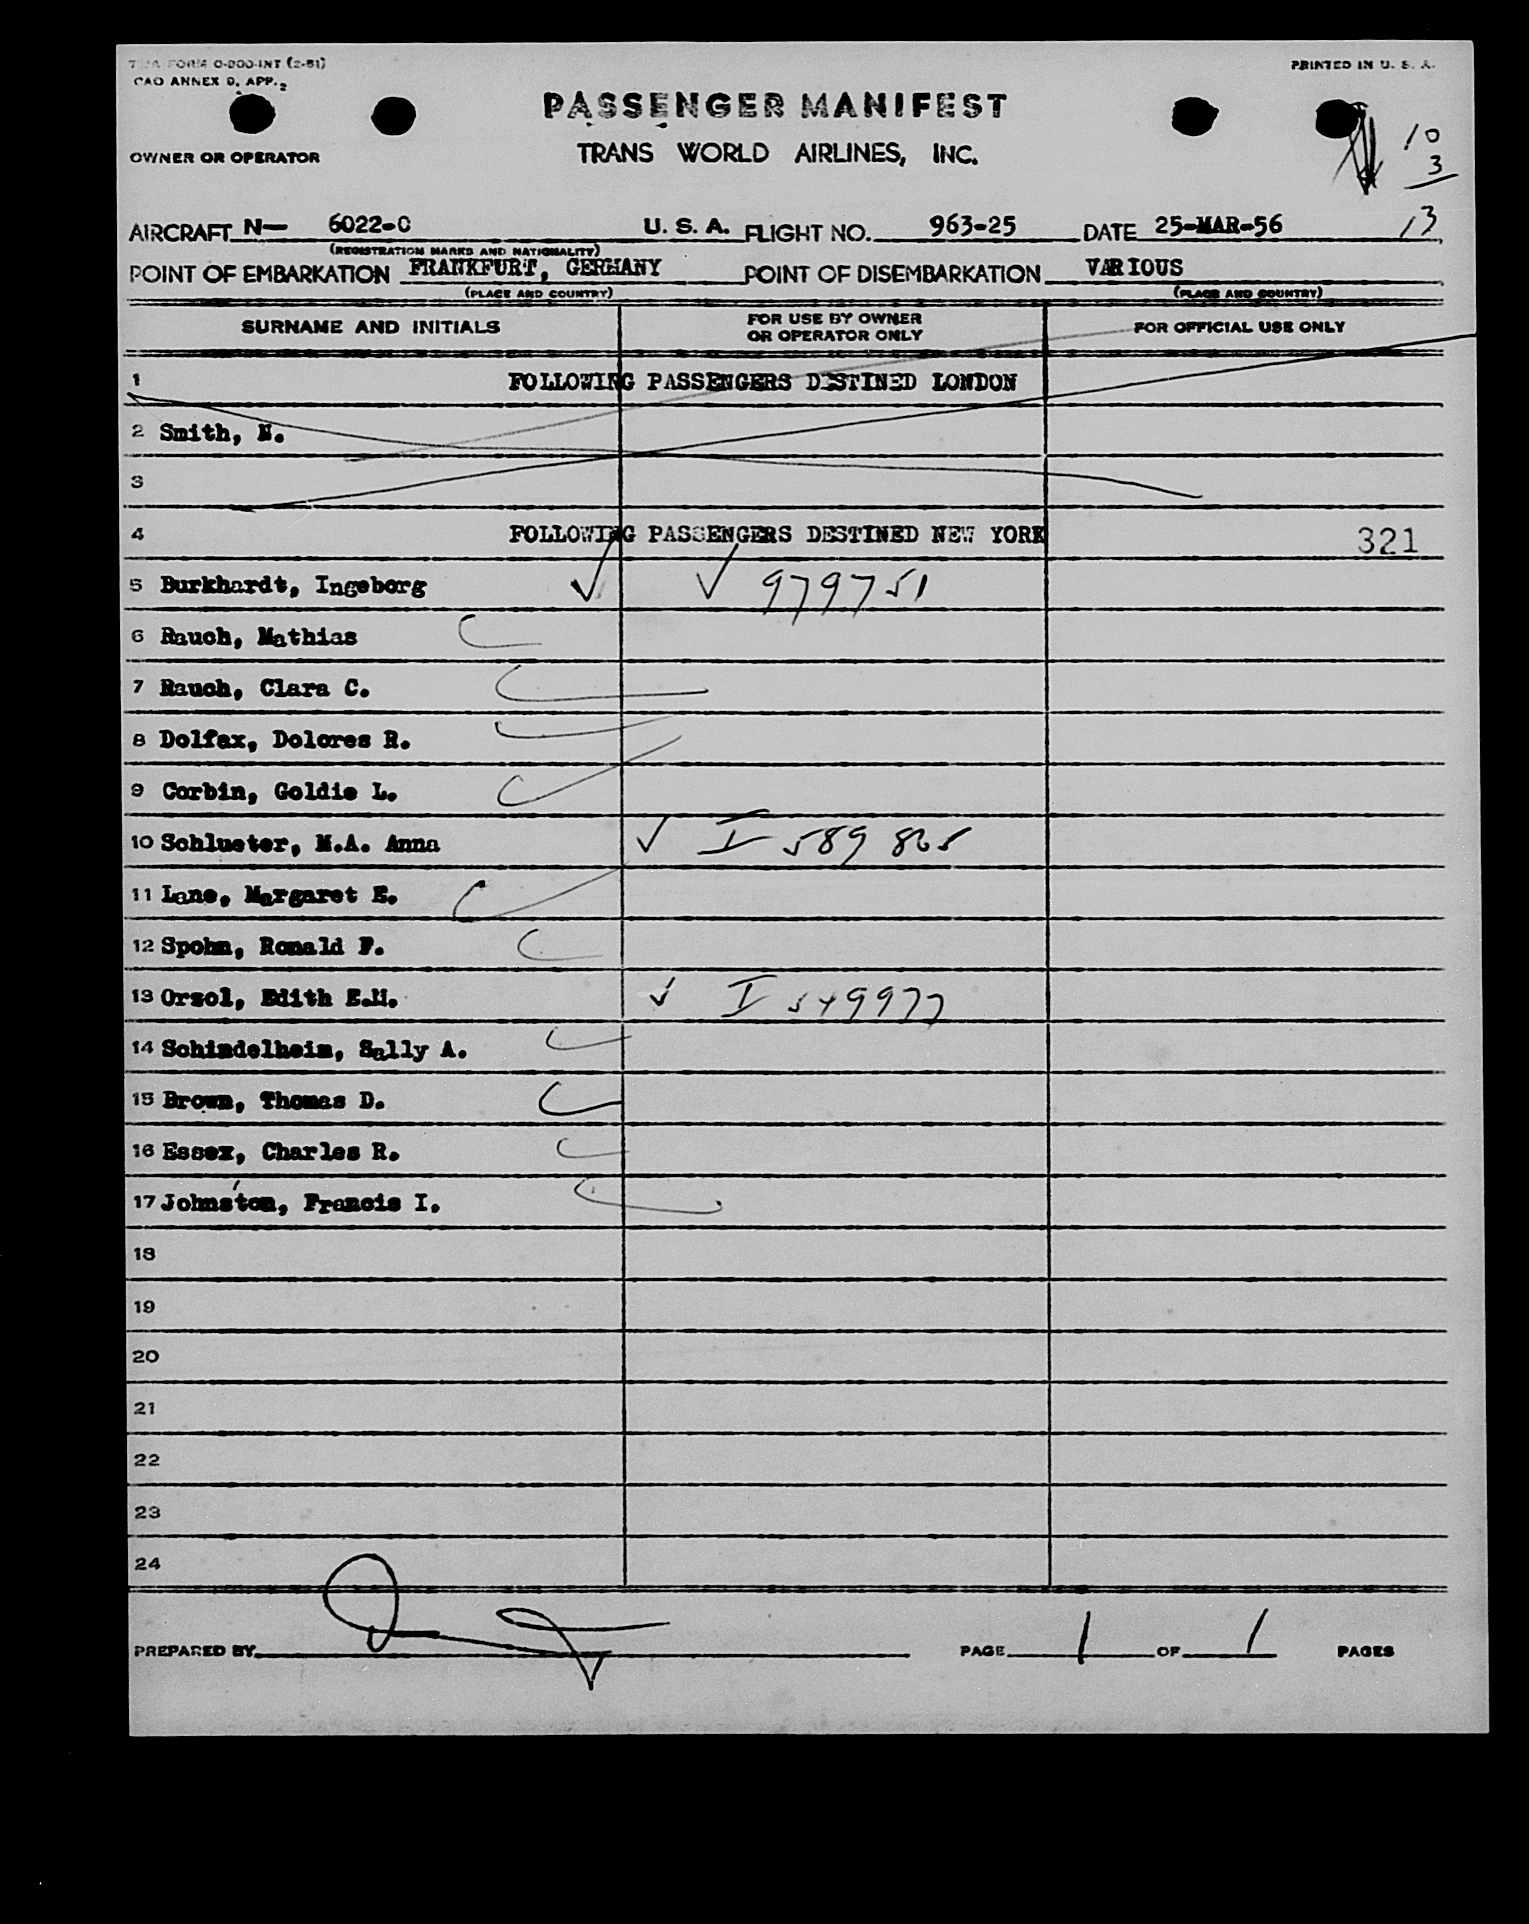 TWA FORM O-200-INT (2-51)
CAO ANNEX 9, APP. 2
PRINTED IN U. S. A.
PASSENGER MANIFEST
OWNER OR OPERATOR
TRANS WORLD AIRLINES, INC.
10
3
13
AIRCRAFT N— 6022-C U. S. A. FLIGHT NO. 963-25 DATE 25-MAR-56
(REGISTRATION MARKS AND NATIONALITY)
POINT OF EMBARKATION FRANKFURT, GERMANY POINT OF DISEMBARKATION VARIOUS
(PLACE AND COUNTRY) (PLACE AND COUNTRY)
SURNAME AND INITIALS FOR USE BY OWNER OR OPERATOR ONLY FOR OFFICIAL USE ONLY
1 FOLLOWING PASSENGERS DESTINED LONDON
2 Smith, N.
3
4 FOLLOWING PASSENGERS DESTINED NEW YORK 321
5 Burkhardt, Ingeborg ✓ ✓ 979751
6 Rauch, Mathias
7 Rauch, Clara C.
8 Dolfax, Dolores R.
9 Corbin, Goldie L.
10 Schlueter, M.A. Anna ✓ I 589 865
11 Lane, Margaret E.
12 Spohn, Ronald F.
13 Orzol, Edith E.M. ✓ I 549977
14 Schindelheim, Sally A.
15 Brown, Thomas D.
16 Essex, Charles R.
17 Johnston, Francis I.
18
19
20
21
22
23
24
PREPARED BY PAGE 1 OF 1 PAGES